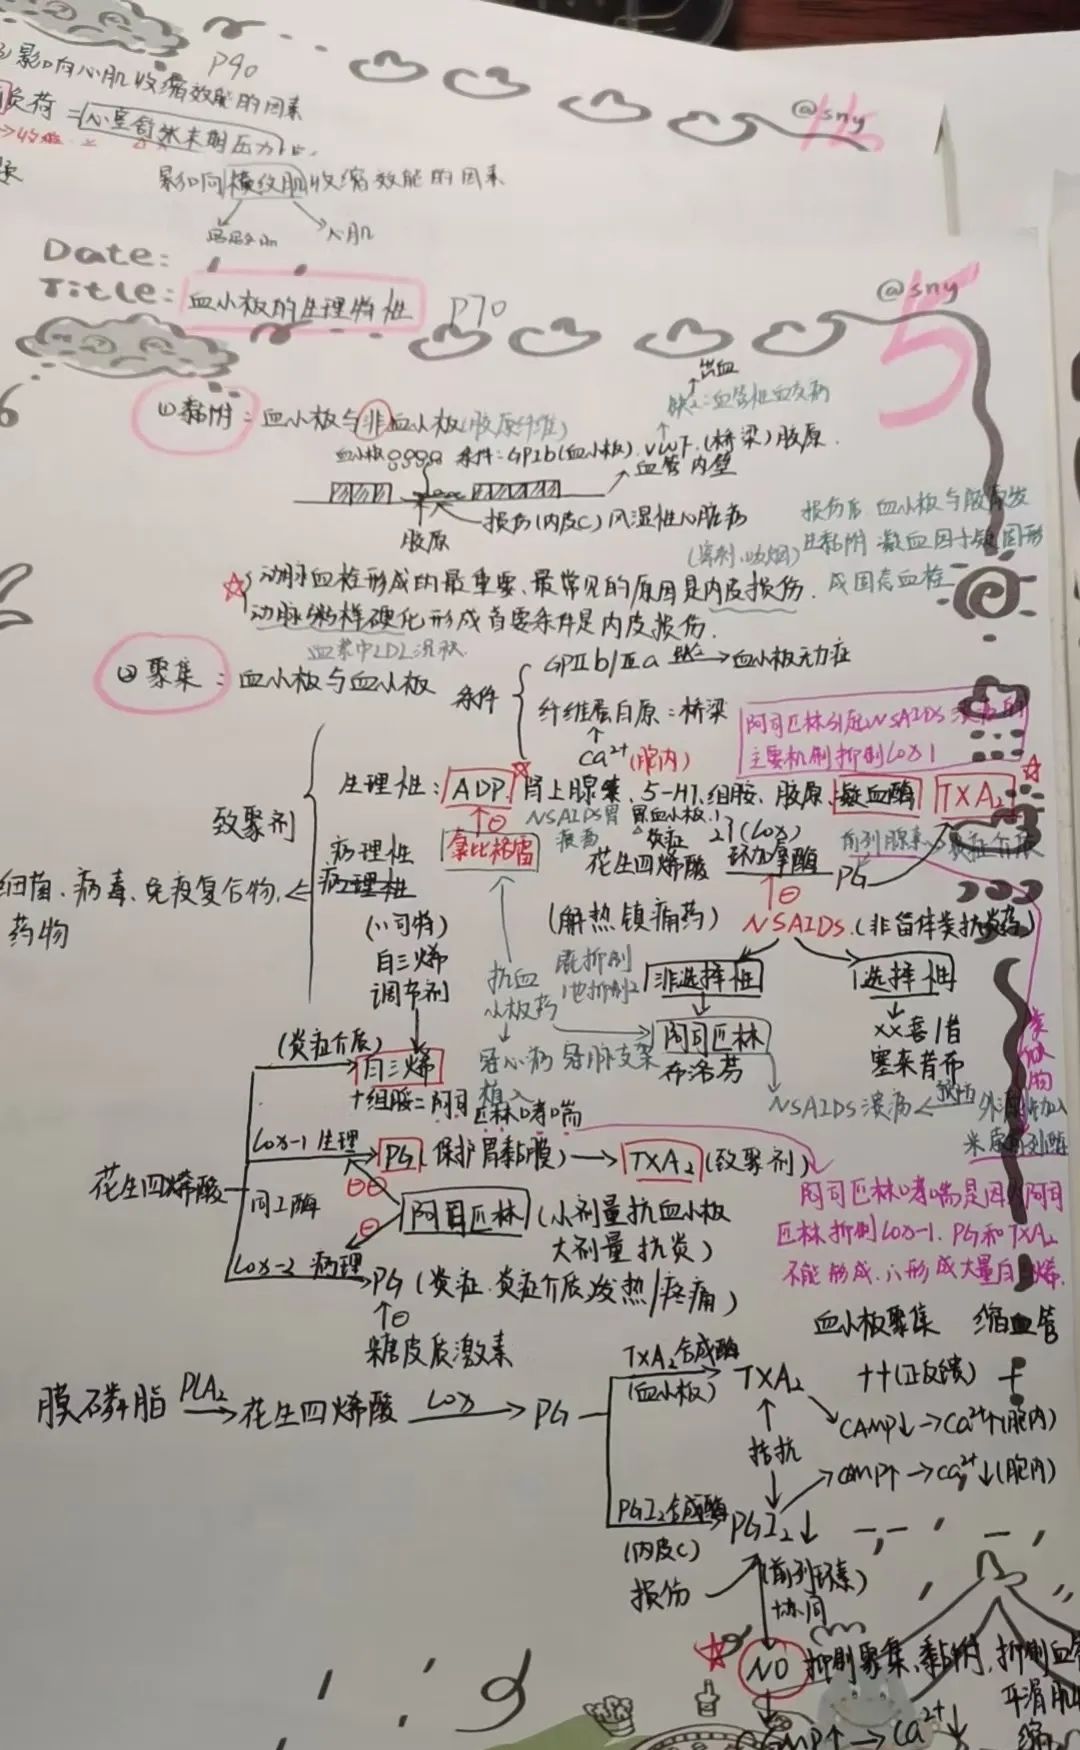 影响心肌收缩效能的因素 P90
负荷=心室舒张末期压力
影响横纹肌收缩效能的因素
骨骼肌 心肌
@sny
Date:
Title: 血小板的生理特性 P70
@sny
5
出血
①黏附：血小板与非血小板(胶原纤维)
血小板 条件：GPIb(血小板). VWF.(桥梁)胶原.
血管内壁
胶原 损伤(内皮C)风湿性心脏病
损伤后 血小板与胶原发
生黏附 凝血因子
成固态血栓
动脉血栓形成的最重要、最常见的原因是内皮损伤.
动脉粥样硬化形成首要条件是内皮损伤.
血浆中LDL沉积
②聚集：血小板与血小板 条件
GPⅡb/Ⅲa → 血小板无力症
纤维蛋白原：桥梁
Ca²⁺(胞内)
阿司匹林引起NSAIDS溃疡的
主要机制抑制COX1
致聚剂
生理性：ADP、肾上腺素、5-HT、组胺、胶原、凝血酶 TXA₂
氯吡格雷
花生四烯酸 环加氧酶 PG
病理性
病理性
细菌、病毒、免疫复合物、
药物
(解热镇痛药) NSAIDS.(非甾体类抗炎药)
白三烯
调节剂
抗血
小板药
既抑制1
也抑制2
非选择性 选择性
阿司匹林
布洛芬
xx喜/昔
塞来昔布
冠心病 冠脉支架
植入
NSAIDS溃疡 ← 预防
(炎症介质)
白三烯
+组胺=阿司匹林哮喘
花生四烯酸
COX-1 生理 PG(保护胃黏膜) → TXA₂(致聚剂)
同工酶 阿司匹林(小剂量抗血小板
大剂量抗炎)
COX-2 病理 PG(炎症.炎症介质,发热/疼痛)
糖皮质激素
阿司匹林哮喘是因阿司
匹林抑制COX-1、PG和TXA₂
不能形成.
血小板聚集 缩血管
膜磷脂 PLA₂→ 花生四烯酸 COX→ PG
TXA₂合成酶
(血小板) TXA₂ ++(正反馈) +
cAMP↓→Ca²⁺↑(胞内)
拮抗
cAMP↑→Ca²⁺↓(胞内)
PGI₂合成酶 PGI₂↓ - -
(内皮C)
损伤 (前列环素)
协同
NO 抑制聚集、黏附,抑制血管
平滑肌
cAMP↑→Ca²⁺↓